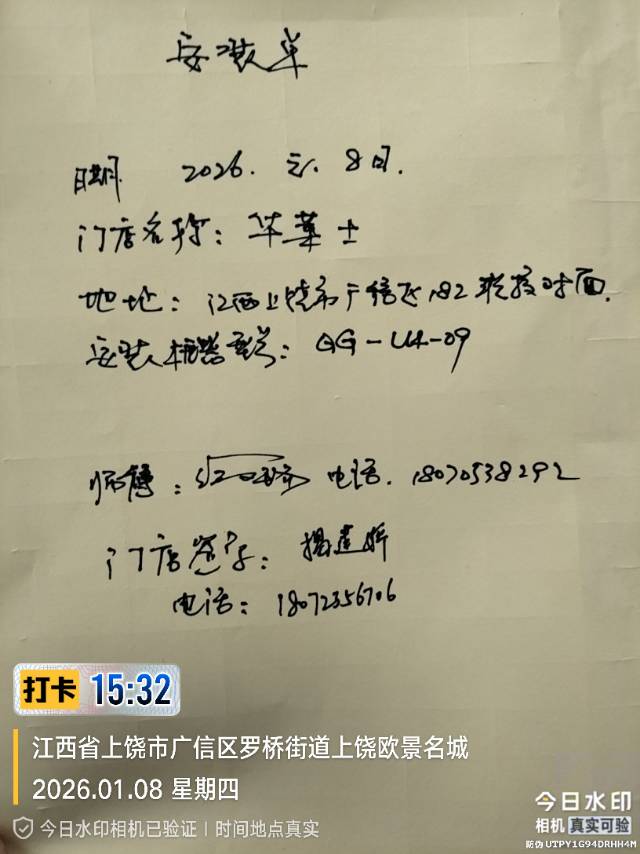 安装单
日期 2026. 元. 8日.
门店名称: 华莱士
地址: 江西上饶市广信区182 对面.
安装机器型号: QG-U4-09
师傅: 电话. 18070538292
门店签字: 杨建娇
电话: 18072356706
打卡 15:32
江西省上饶市广信区罗桥街道上饶欧景名城
2026.01.08 星期四
今日水印相机已验证 | 时间地点真实
今日水印
相机 真实可验
防伪 UTPY1G94DRHH4M